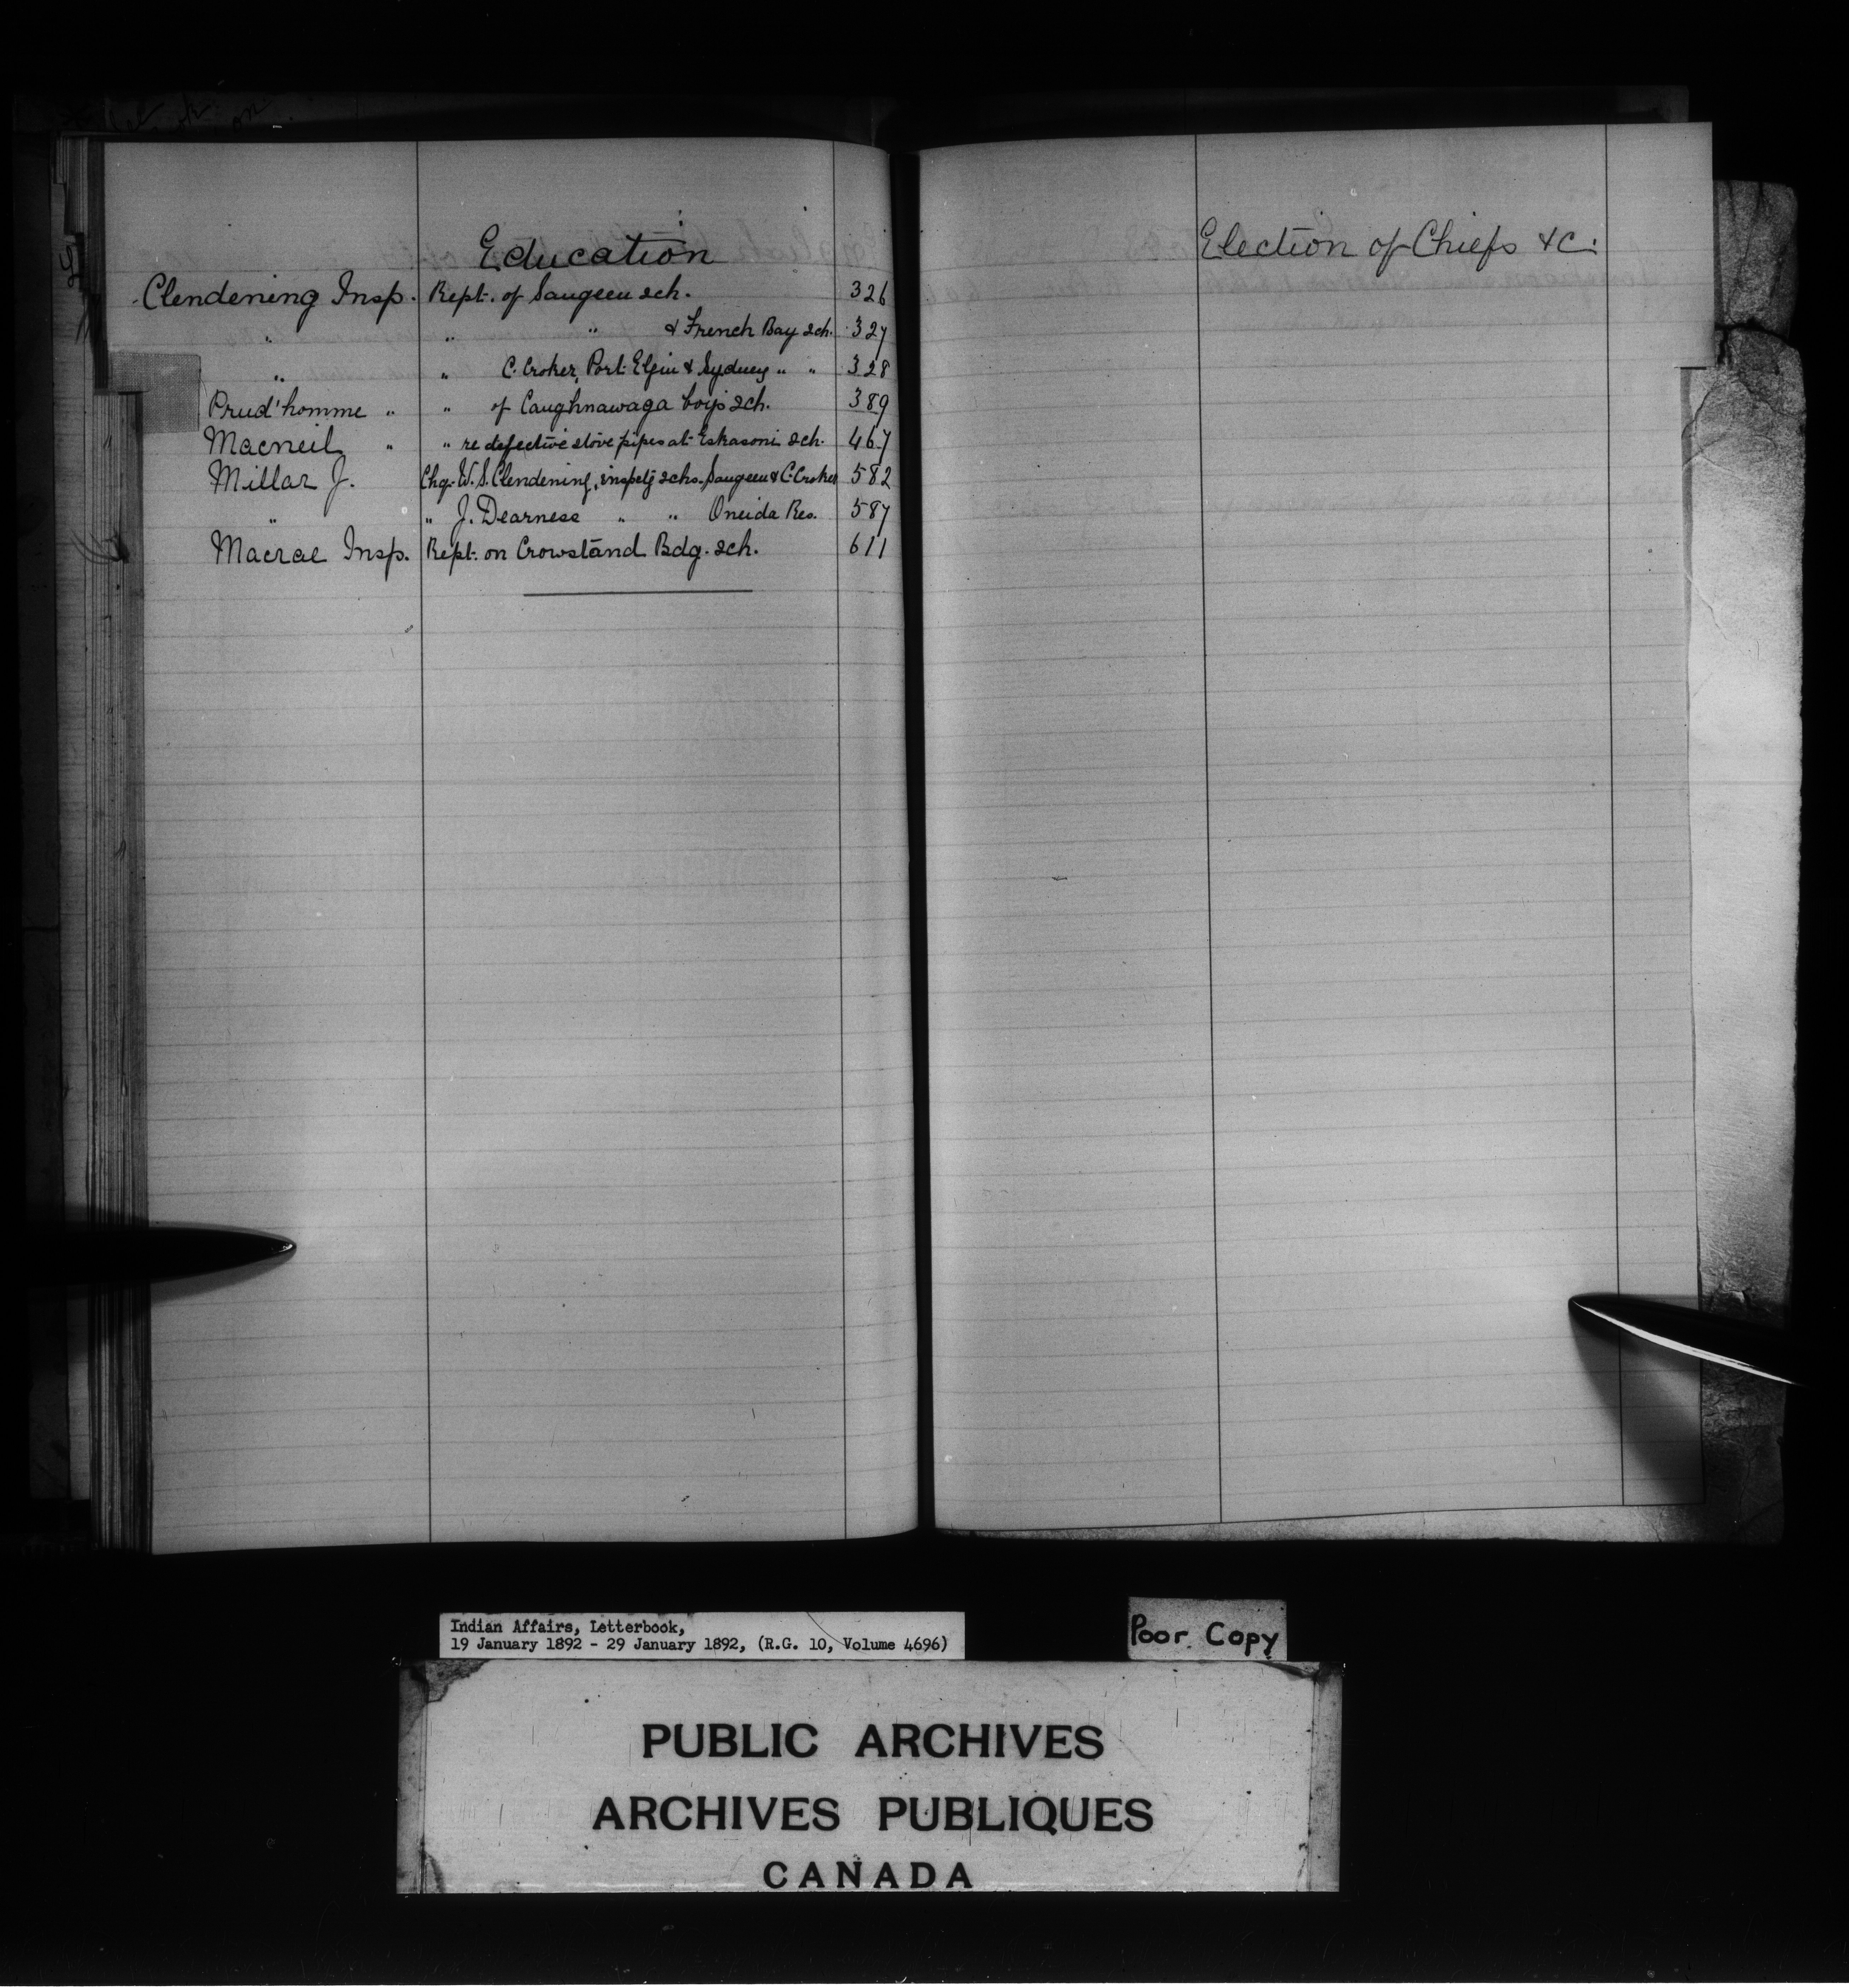 Education
Clendening Insp. Rept. of Saugeen sch. 326
" " " & French Bay sch. 327
" " C. Croker, Port Elgin & Sydney " " 328
Prud'homme " " of Caughnawaga boys sch. 389
Macneil " " re defective stove pipes at Eskasoni sch. 467
Millar J. Chq. W. S. Clendening, inspctg schs. Saugeen & C. Croker 582
" " J. Dearness " " Oneida Res. 587
Macrae Insp. Rept. on Crowstand Bdg. sch. 611
Election of Chiefs &c.
Indian Affairs, Letterbook,
19 January 1892 - 29 January 1892, (R.G. 10, Volume 4696)
Poor Copy
PUBLIC ARCHIVES
ARCHIVES PUBLIQUES
CANADA